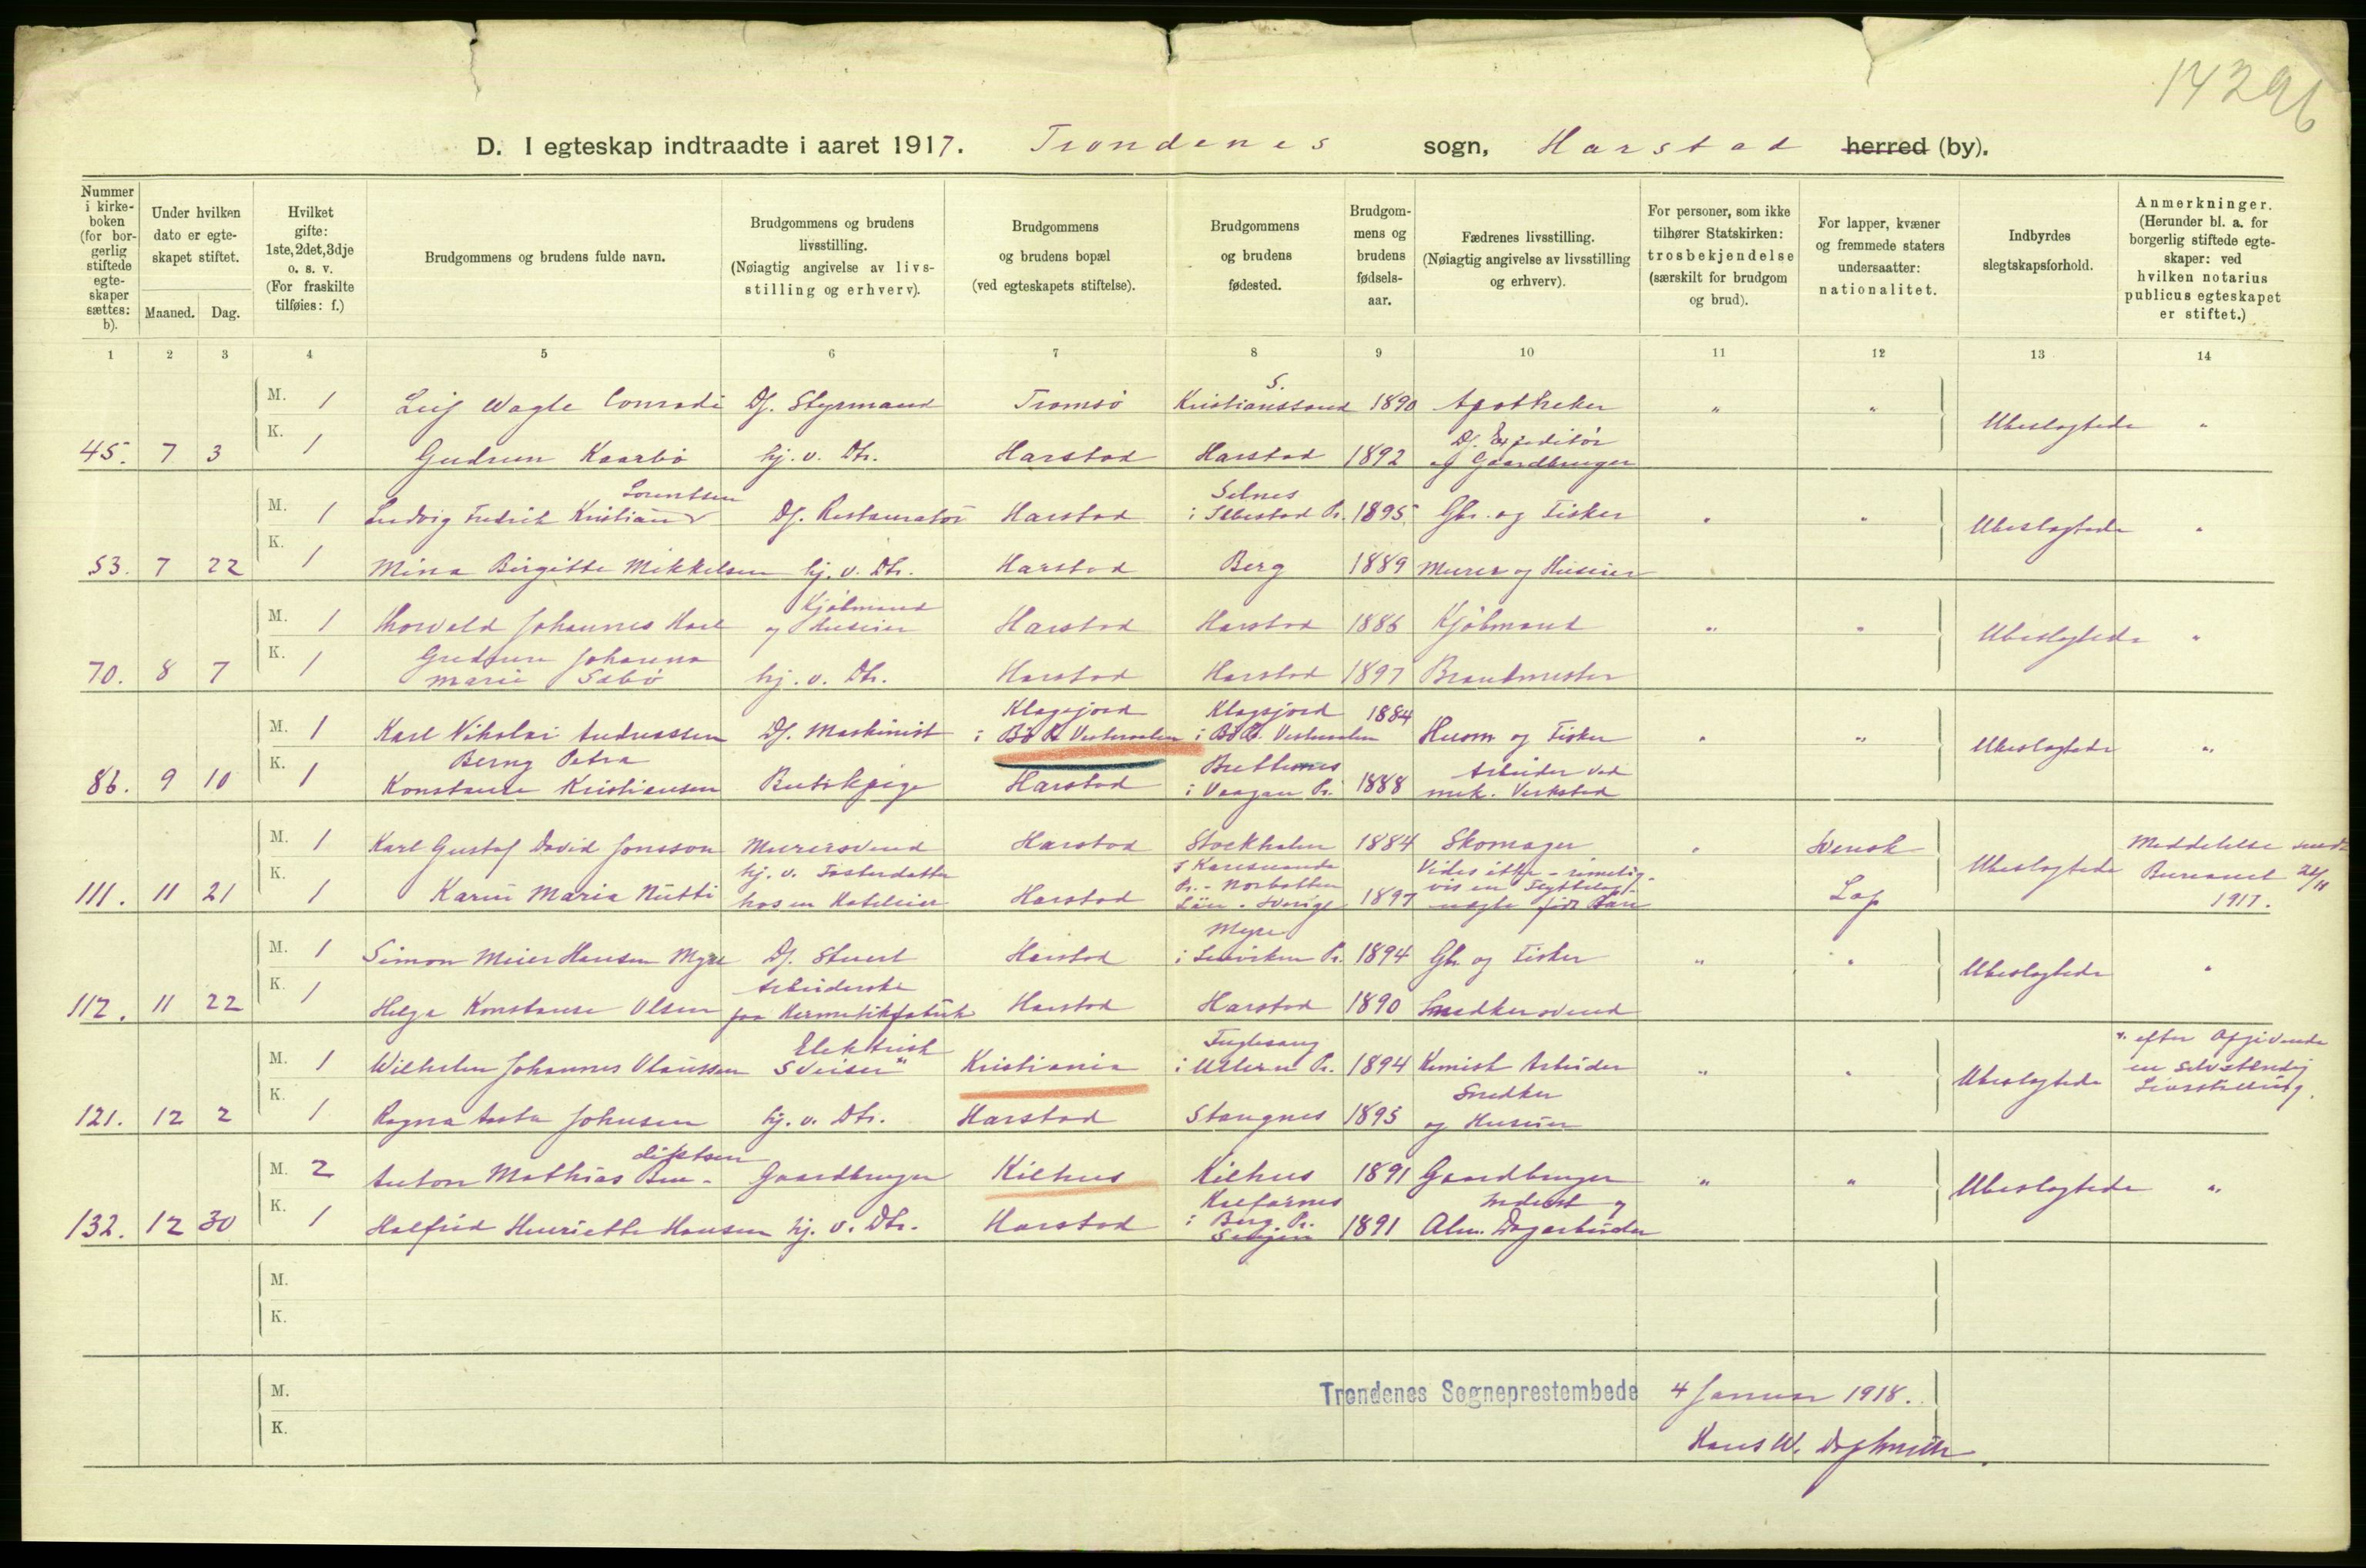 14296
D. I egteskap indtraadte i aaret 1917. Trondenes sogn, Harstad herred (by).
Nummer i kirkeboken (for borgerlig stiftede egteskaper sættes: b).
Under hvilken dato er egteskapet stiftet.
Maaned. Dag.
Hvilket gifte: 1ste, 2det, 3dje o. s. v. (For fraskilte tilføies: f.)
Brudgommens og brudens fulde navn.
Brudgommens og brudens livsstilling. (Nøiagtig angivelse av livsstilling og erhverv).
Brudgommens og brudens bopæl (ved egteskapets stiftelse).
Brudgommens og brudens fødested.
Brudgommens og brudens fødselsaar.
Fædrenes livsstilling. (Nøiagtig angivelse av livsstilling og erhverv).
For personer, som ikke tilhører Statskirken: trosbekjendelse (særskilt for brudgom og brud).
For lapper, kvæner og fremmede staters undersaatter: nationalitet.
Indbyrdes slegtskapsforhold.
Anmerkninger. (Herunder bl. a. for borgerlig stiftede egteskaper: ved hvilken notarius publicus egteskapet er stiftet.)
1 2 3 4 5 6 7 8 9 10 11 12 13 14
M. 1 Leif Wagle Conradi Df. Styrmand Tromsö Kristianssand S. 1890 Apotheker " "
45. 7 3 K. 1 Gudrun Kaarbö hj. v. Dtr. Harstad Harstad 1892 Df. Expeditör og Gaardbruger Ubeslagtede "
M. 1 Ludvig Fredrik Kristian Lorentsen Df. Restauratör Harstad Selnes i Ibbestad Pr. 1895 Gbr. og Fisker " "
53. 7 22 K. 1 Mina Birgitte Mikkelsen hj. v. Dtr. Harstad Berg 1889 Murer og Huseier Ubeslagtede "
M. 1 Thorvald Johannes Kjöbmand og Huseier Harstad Harstad 1886 Kjöbmand " "
70. 8 7 K. 1 Gudrun Johanna Marie Sæbö hj. v. Dtr. Harstad Harstad 1897 Brandmester Ubeslagtede "
M. 1 Karl Nikolai Andreassen Df. Maskinist Klagsjord i Bö Pr. Vesteraalen Klagsjord i Bö Pr. Vesteraalen 1884 Husm. og Fisker " "
86. 9 10 K. 1 Berny Petra Konstanse Kristiansen Butikpige Harstad Brettesnes i Vaagan Pr. 1888 Arbeider ved mek. Verksted Ubeslagtede "
M. 1 Karl Gustaf David Jonsson Murersvend Harstad Stockholm 1884 Skomager " Svensk
111. 11 21 K. 1 Karin Maria Nutti hj. v. Fosterdatter hos en Hoteleier Harstad I Karesuando Pr. - Norbotten Län - Sverige 1897 Vides ikke - rimeligvis en Lap Ubeslagtede Meddelelse sendt Bureauet 24/11 1917.
M. 1 Simon Meier Hansen Myre Df. Stuert Harstad Myre i Pr. 1894 Gbr. og Fisker " "
112. 11 22 K. 1 Helga Konstanse Olsen Arbeiderske paa Hermetikfabrik Harstad Harstad 1890 Snedkersvend Ubeslagtede "
M. 1 Wilhelm Johannes Olaussen Elektrisk Sveiser * Kristiania Fuglesang i Pr. 1894 Kemisk Arbeider " "
121. 12 2 K. 1 Ragna Aasta Johnsen hj. v. Dtr. Harstad Stangnes 1895 Snedker og Huseier Ubeslagtede *. efter Opgivende en selvstændig Livsstilling.
M. 2 Anton Mathias Benediktsen Gaardbruger Kilhus Kilhus 1891 Gaardbruger " "
132. 12 30 K. 1 Halfrid Henriette Hansen hj. v. Dtr. Harstad Kalfarnes i Berg Pr. Senjen 1891 Inderst og Alm. Dagarbeider Ubeslagtede "
M.
K.
M.
K.
Trondenes Sogneprestembede 4 Januar 1918.
Hans W.